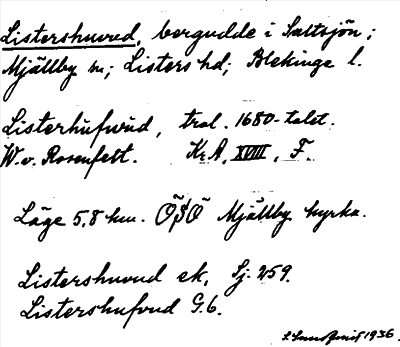 Listershuvud, bergudde i Saltsjön;
Mjällby sn; Listers hd; Blekinge l.
Listerhufwud, trol. 1680-talet.
W. v. Rosenfelt. Kr.A, XVIII, F.
Läge 5,8 km. ÖSÖ Mjällby kyrka.
Listershuvud ek, Sj. 259.
Listershufvud G.6.
1936.